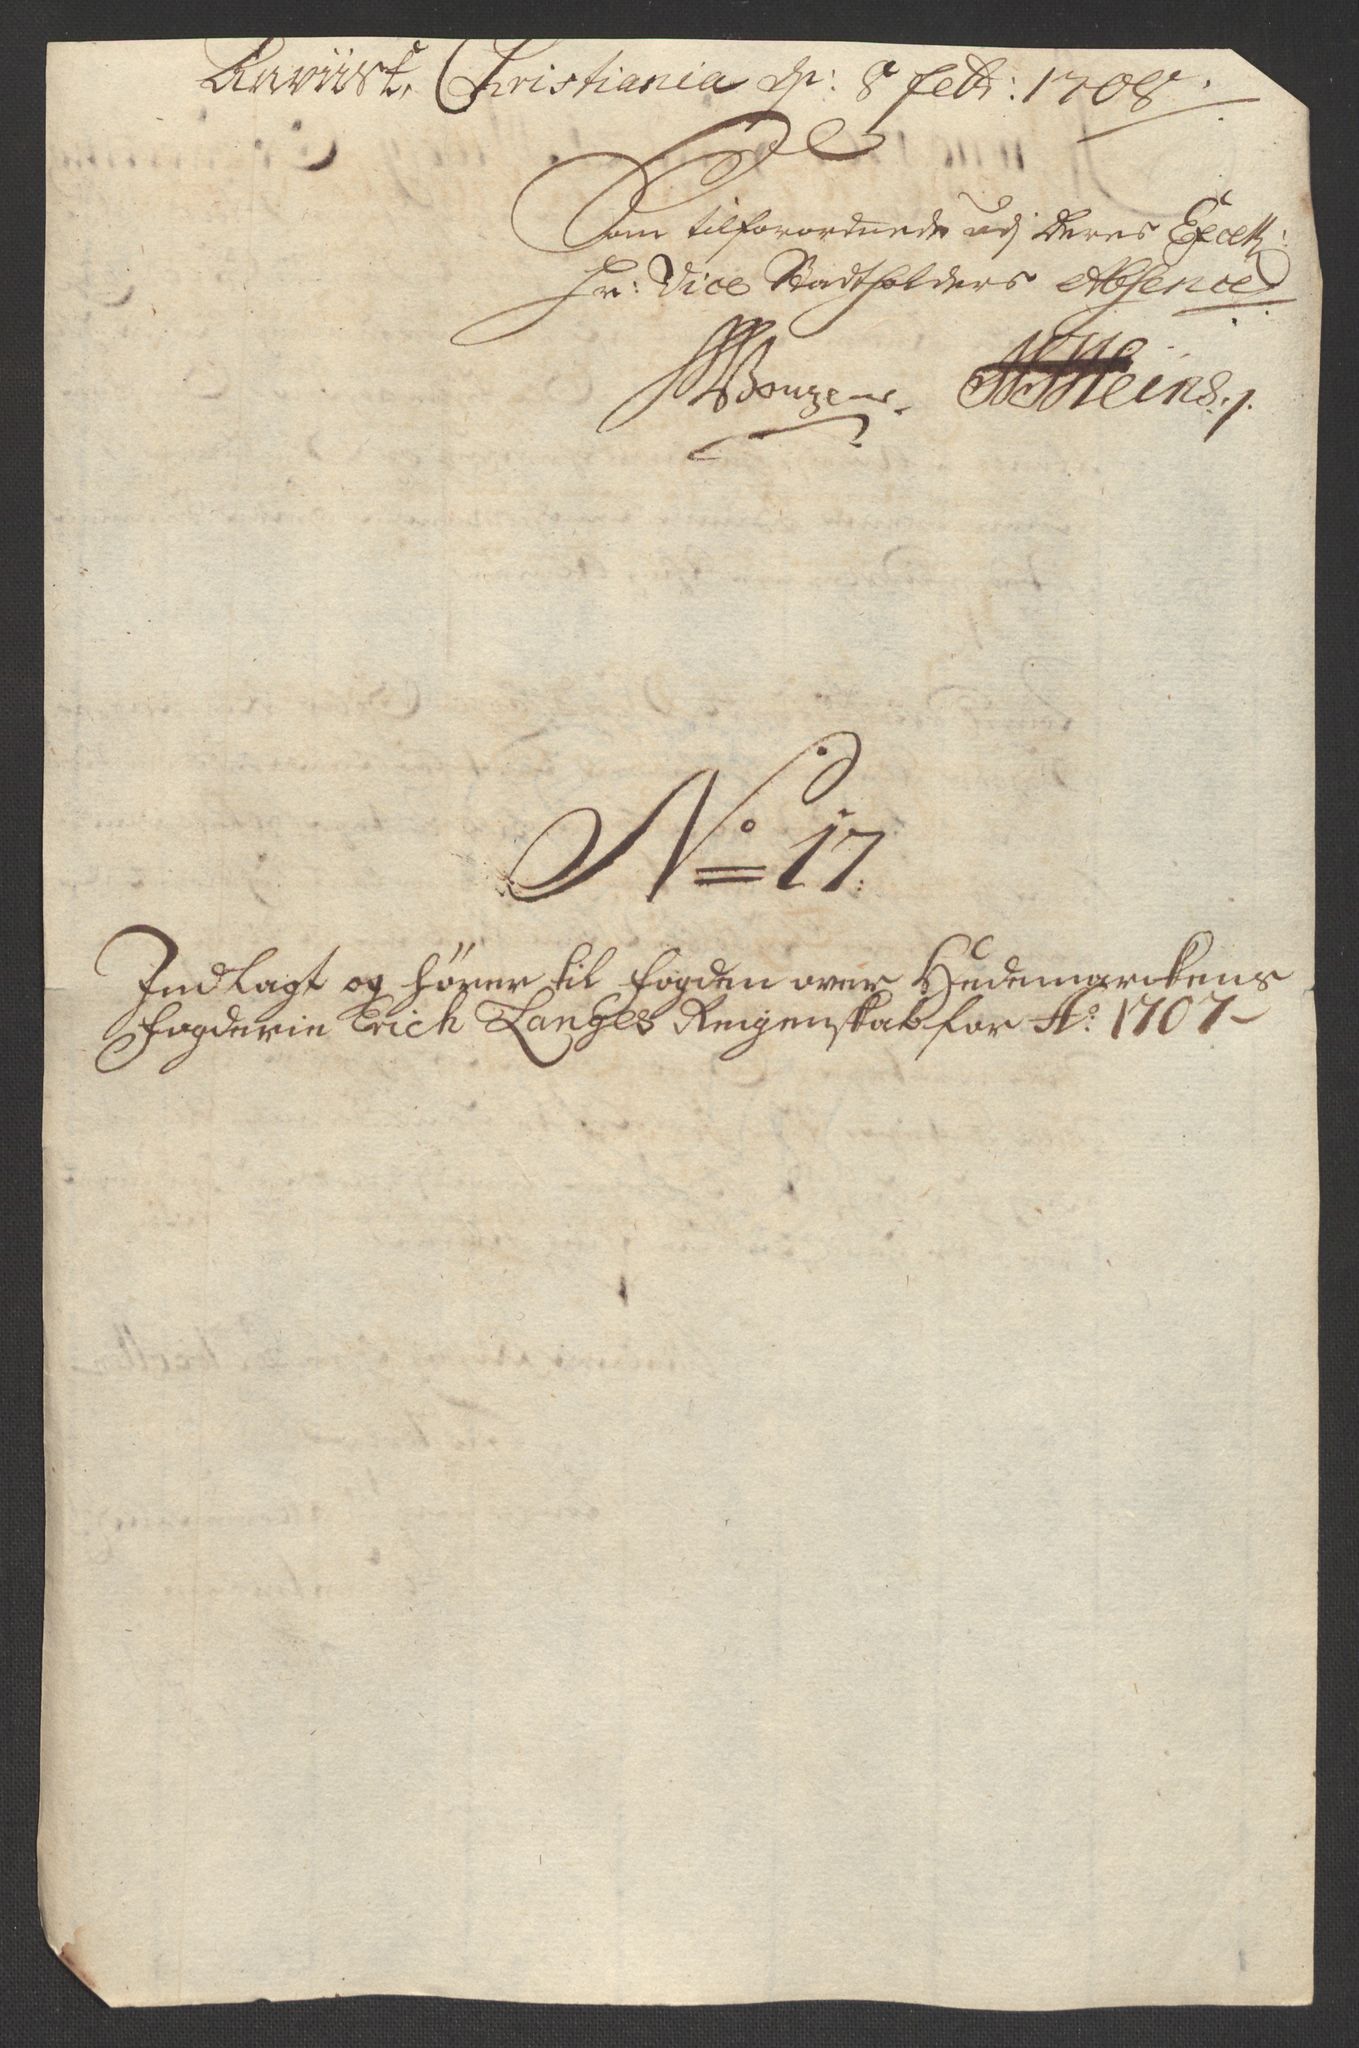 Reviist, Christiania d: 8 feb: 1708.
Som tilforordnede udj deres Excell:
Hr: Vice Stadtholders Absence
No 17.
Indlagt og hører til fogden over Hedemarckens
fogderie Erich Langes Regenskab for Ao: 1707